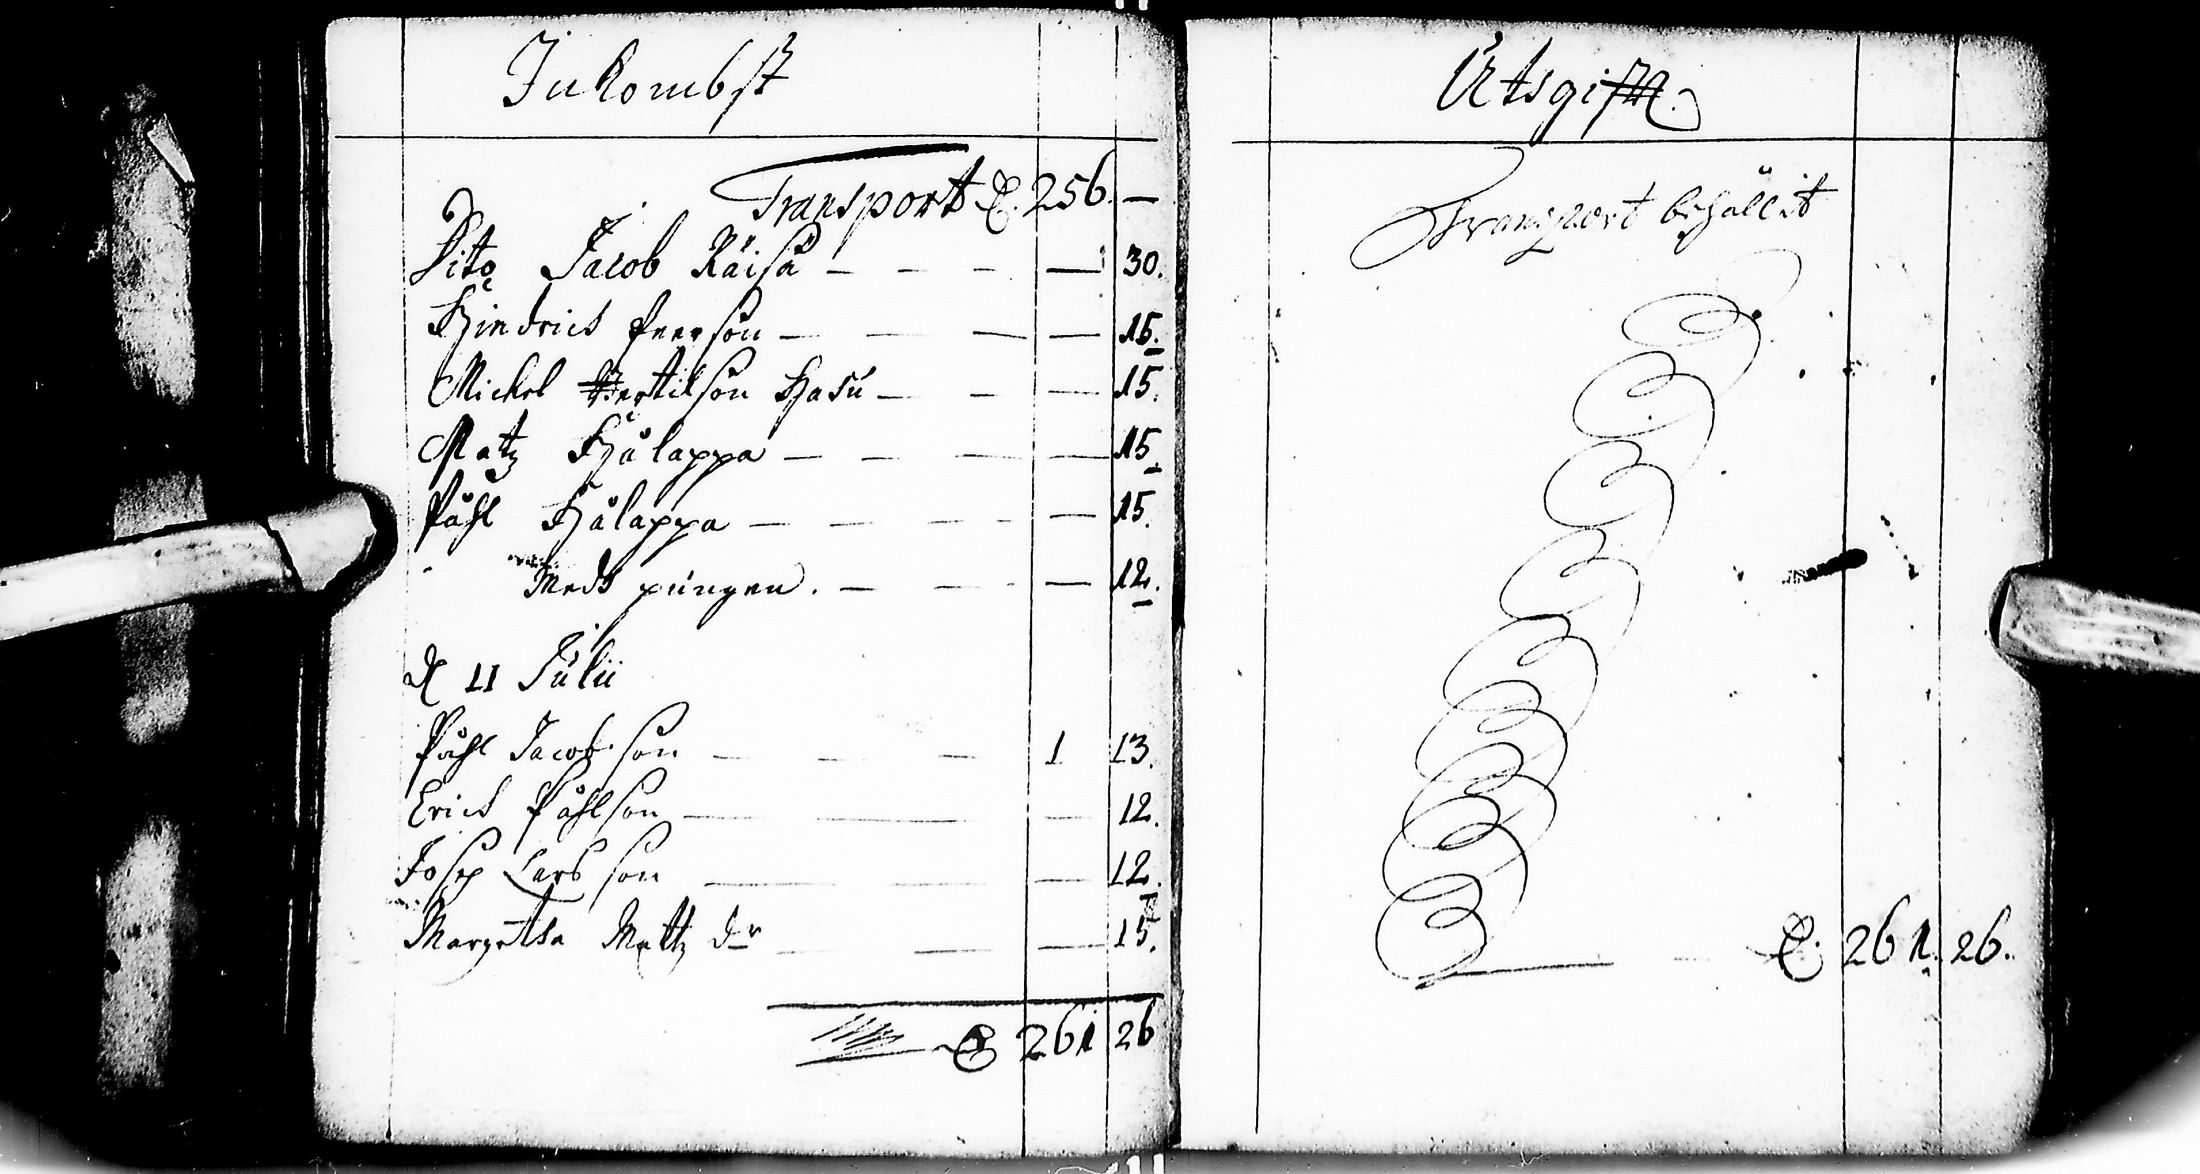 Inkombst
Transport D. 256. —
Dito Jacob Räisä — — — — 30.
Hindrick Peerson — — — — 15.
Michel Bertilson Hasu — — — 15.
Matz Hålappa — — — — 15.
Påhl Hålappa — — — — 15.
Medh pungen. — — — 12.
D 11 Julii
Påhl Jacobson — — — 1 13.
Erich Påhlson — — — 12.
Josep Larsson — — — 12.
Margetha Mattz dr — — — 15.
D 261 26
Utsgifft.
Transport behållit
D. 261. 26.